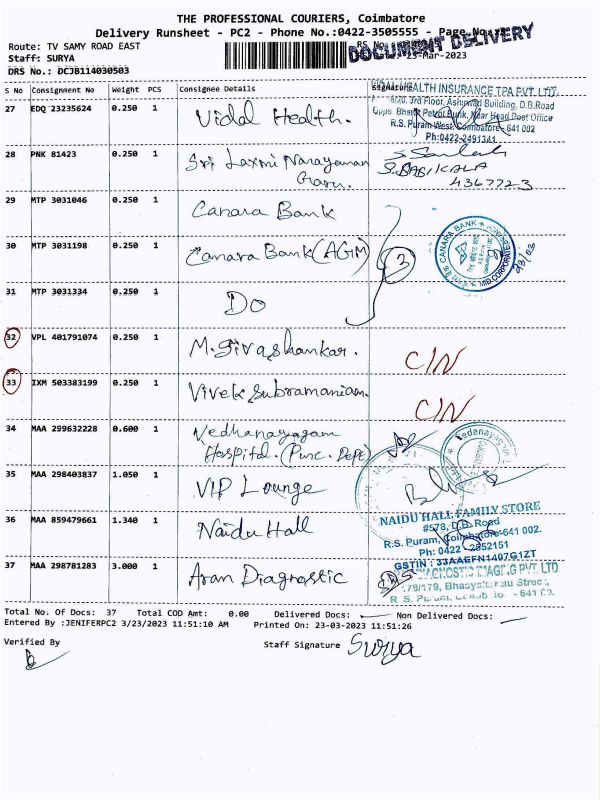 THE PROFESSIONAL COURIERS, Coimbatore
Delivery Runsheet - PC2 - Phone No.:0422-3505555 - Page No.:
DOCUMENT DELIVERY
Route: TV SAMY ROAD EAST
Staff: SURYA 23-Mar-2023
DRS No.: DCJB114030503
S No Consignment No Weight PCS Consignee Details Signature
27 EDQ 23235624 0.250 1 Vidal Health.
HEALTH INSURANCE TPA PVT. LTD.
3rd Floor, Ashirwad Building, D.B.Road
Opps. Bharat Petrol Bunk, Near Head Post Office
R.S. Puram West, Coimbatore - 641 002
Ph:0422-2491341
28 PNK 81423 0.250 1 Sri Laxmi Narayanan
4367723
29 MTP 3031046 0.250 1 Canara Bank
30 MTP 3031198 0.250 1 Canara Bank (AGM) 3
CANARA BANK
MID CORPORATE
31 MTP 3031334 0.250 1 Do
32 VPL 401791074 0.250 1 M.Sivashankar. C/N
33 IXM 503383199 0.250 1 Vivek Subramaniam. C/N
34 MAA 299632228 0.600 1 Vedhanayagam
Hospital. (Purc. Dept)
Vedanayagam
35 MAA 298403837 1.050 1 VIP Lounge
36 MAA 859479661 1.340 1 Naidu Hall
NAIDU HALL FAMILY STORE
#578, D.B. Road
R.S. Puram, Coimbatore-641 002.
Ph: 0422 - 2552151
GSTIN : 33AAEFN1407G1ZT
37 MAA 298781283 3.000 1 Aran Diagnostic
DIAGNOSTIC IMAGING PVT. LTD
178/179, Bhasyakaralu Street,
R. S. Puram,
Total No. Of Docs: 37 Total COD Amt: 0.00 Delivered Docs: Non Delivered Docs:
Entered By :JENIFERPC2 3/23/2023 11:51:10 AM Printed On: 23-03-2023 11:51:26
Verified By Staff Signature Surya